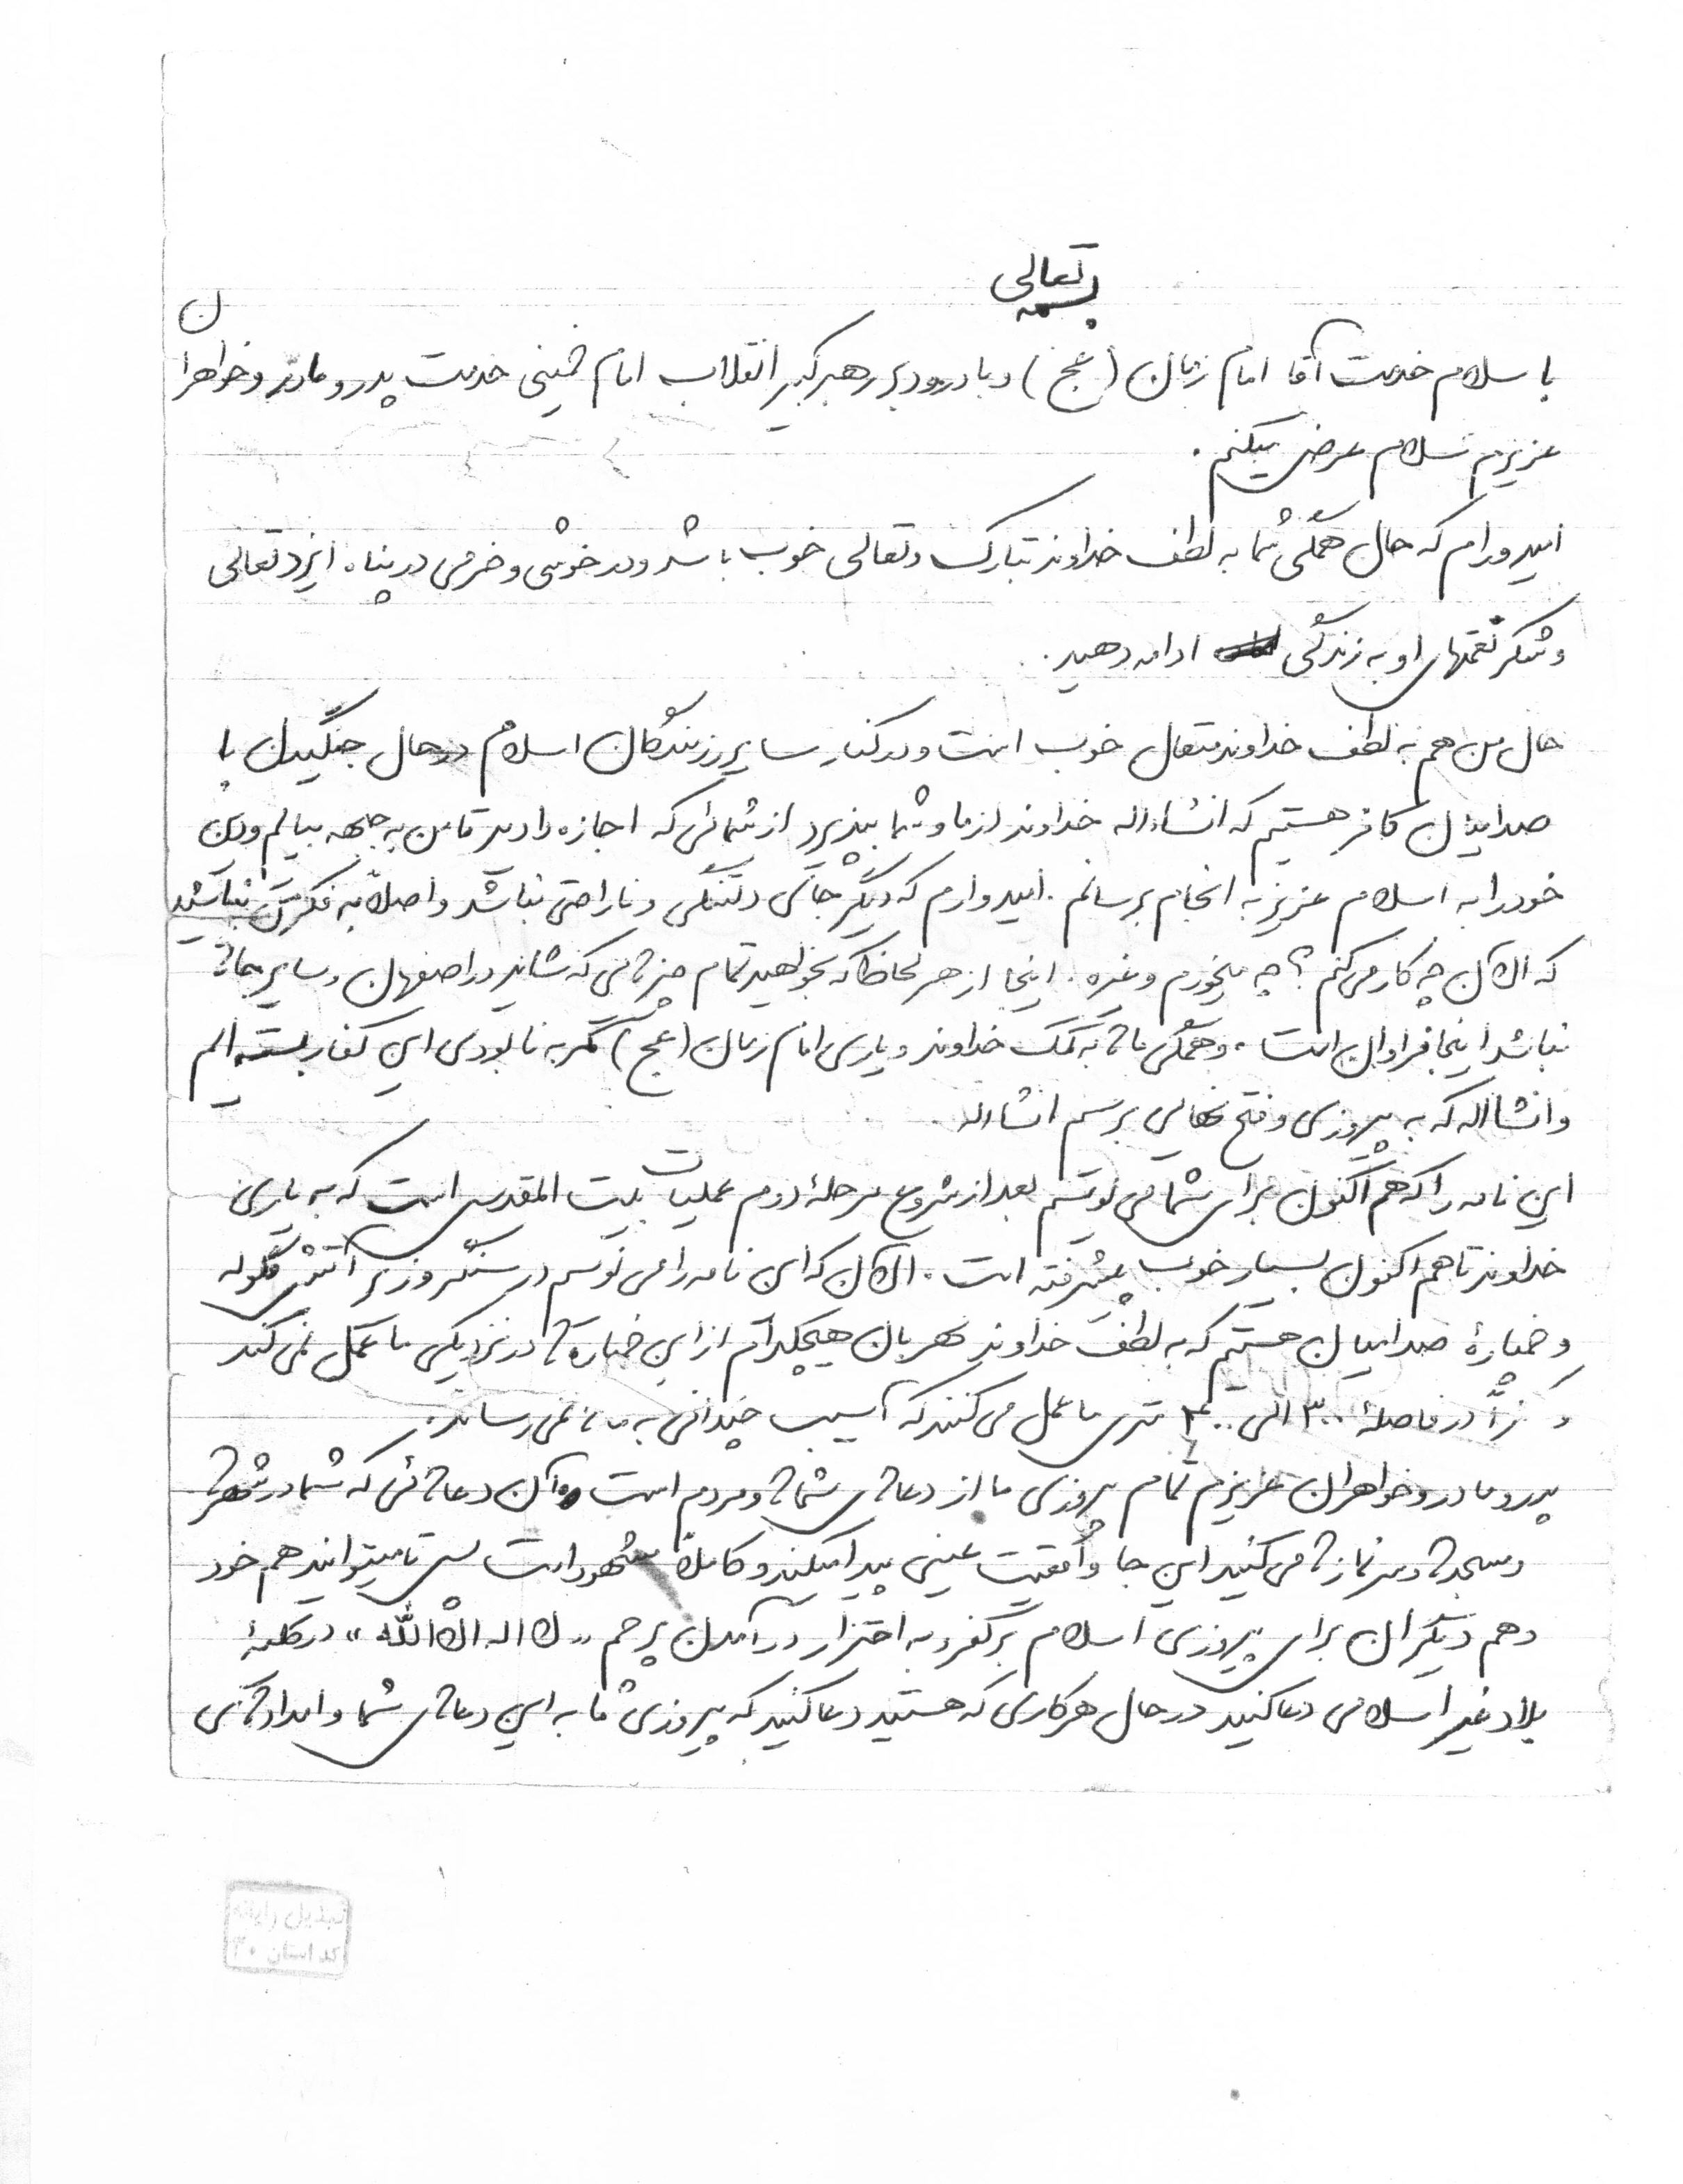 بسمه تعالی
با سلام خدمت آقا امام زمان (عج) و با درود بر رهبر کبیر انقلاب امام خمینی خدمت پدر و مادر و خواهران
عزیزم سلام عرض میکنم.
امیدورام که حال همگی شما به لطف خداوند تبارک و تعالی خوب باشد و در خوشی و خرمی در پناه ایزد تعالی
و شکر نعمتهای او به زندگی ادامه دهید.
حال من هم به لطف خداوند متعال خوب است و در کنار سایر رزمندگان اسلام در حال جنگیدن با
صدامیان کافر هستیم که انشاءاله خداوند از ما و شما بپذیرد از شمائی که اجازه دادید تا من به جبهه بیایم و دین
خود را به اسلام عزیز به انجام برسانم. امیدوارم که دیگر جای دلتنگی و ناراحتی نباشد و اصلاً به فکرش نباشید
که الآن چه کار می کنم؟ چه میخورم و غیره. اینجا از هر لحاظ که بخواهید تمام چیزهایی که شاید در اصفهان و سایر جاها
نباشد اینجا فراوان است. و همگی ما به کمک خداوند و یاری امام زمان (عج) کمر به نابودی این کفار بسته ایم
و انشااله که به پیروزی و فتح نهایی برسیم انشاءاله.
این نامه را که هم اکنون برای شما می نویسم بعد از شروع مرحلهٔ دوم عملیات بیت المقدس است که به یاری
خداوند تا هم اکنون بسیار خوب پیشرفته است. الآن که این نامه را می نویسم در سنگر و زیر آتش گلوله
و خمپارهٔ صدامیان هستیم که به لطف خداوند مهربان هیچکدام از این خمپاره ها در نزدیکی ما عمل نمی کند
و در فاصلهٔ ۳۰۰ الی ۴۰۰ متری ما عمل می کنند که آسیب چندانی به ما نمی رساند.
پدر و مادر و خواهران عزیزم تمام پیروزی ما از دعاهای شماها و مردم است و آن دعاهائی که شما در شهرها
و مسجدها و سر نمازها می کنید این جا واقعیت عینی پیدا میکند و کاملاً مشهود است پس تا میتوانید هم خود
و هم دیگران برای پیروزی اسلام بر کفر و به اهتزاز در آمدن پرچم «لا اله الا الله» در کلیهٔ
بلاد غیر اسلامی دعا کنید در حال هر کاری که هستید دعا کنید که پیروزی ما به این دعاهای شما و امدادهای